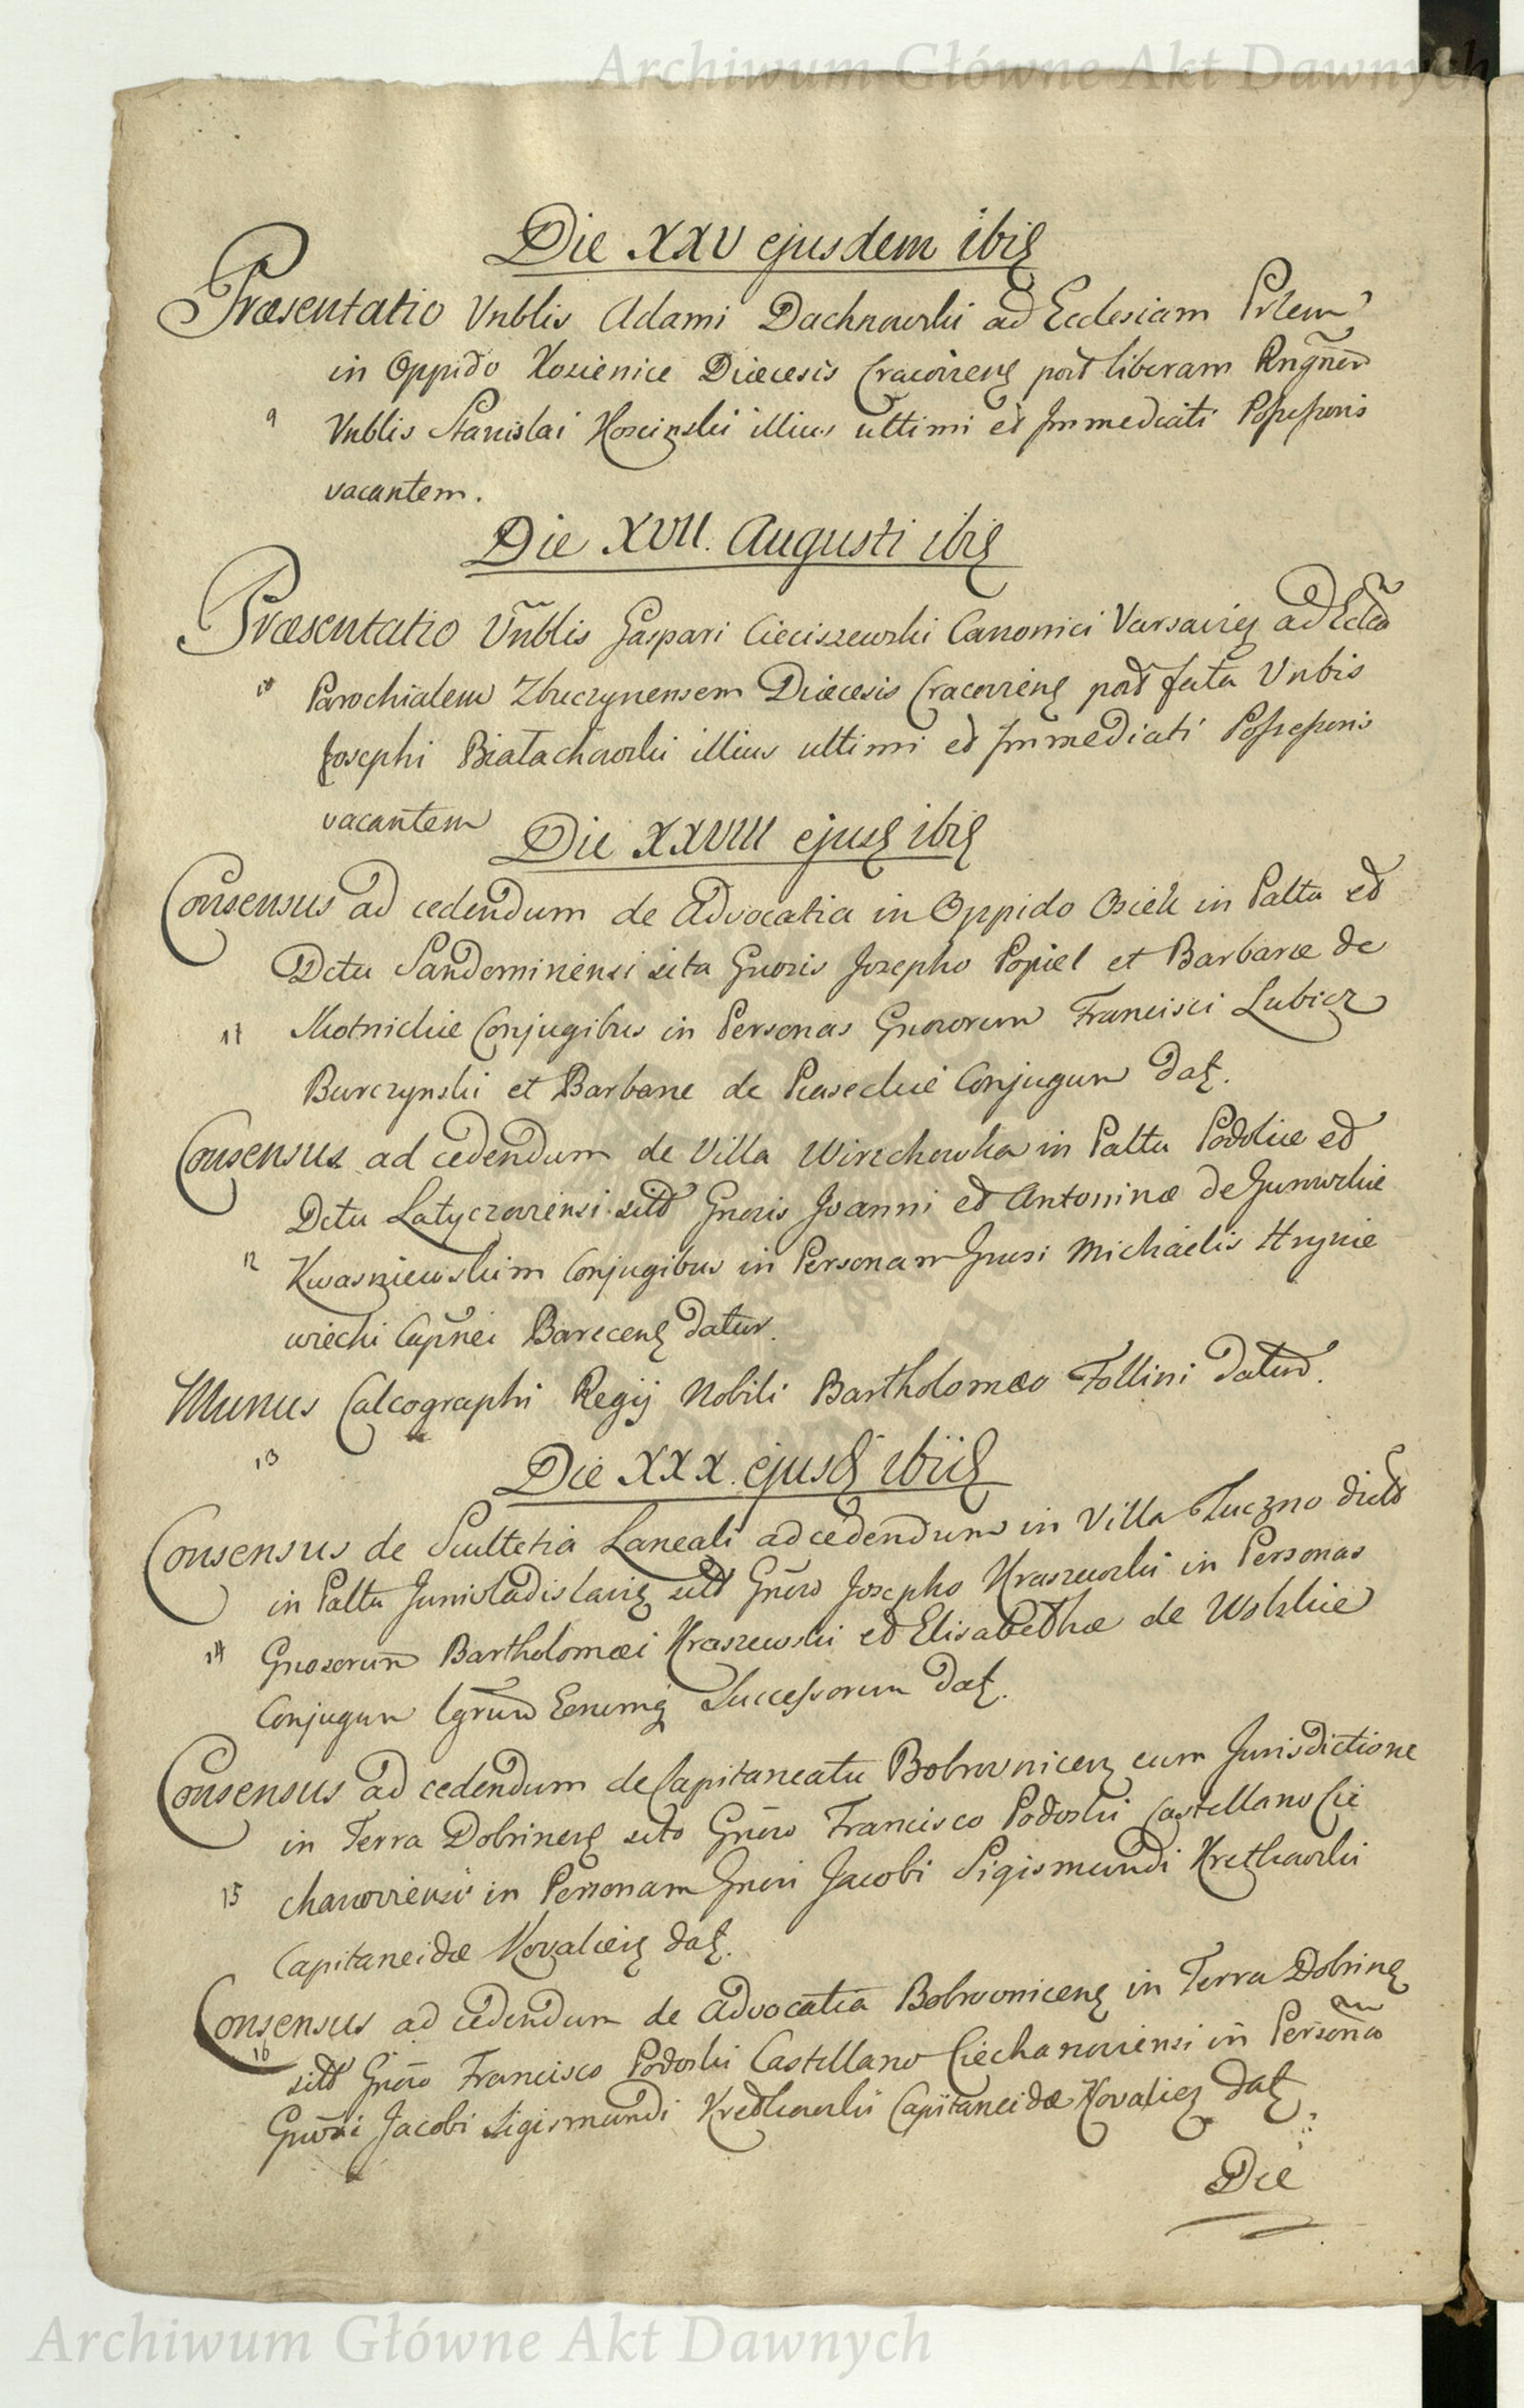 Archiwum Główne Akt Dawnych
Die XXV ejusdem ibid
Præsentatio Vnblis Adami Dachnowski ad Ecclesiam Prlem
in Oppido Kozienice Diæcesis Cracovien post liberam Rngnem
9 Vnblis Stanislai Kosinski illius ultimi et Immediati Possessoris
vacantem.
Die XVII. Augusti ibid
Præsentatio Vnblis Gaspari Cieciszewski Canonici Varsavien ad Eccl
10 Parochialem Zbuczynensem Diæcesis Cracovien post fata Vnblis
Josephi Białachowski illius ultimi et Immediati Possessoris
vacantem
Die XXVIII ejusd ibid
Consensus ad cedendum de Advocatia in Oppido Osiek in Pallu et
Dctu Sandomiriensi sita Gnosis Josepho Popiel et Barbaræ de
11 Conjugibus in Personas Gnosorum Francisci Lubicz
Burczynski et Barbaræ de Piaseckie Conjugum dat.
Consensus ad cedendum de Villa Wirzchowka in Pallu Podoliæ et
Dctu Latyczoviensi sita Gnosis Joanni et Antoninæ de
12 Kwasniewskim Conjugibus in Personam Gnosi Michaelis Hrynie
wiecki Capnei Barecens datur.
Munus Calcographi Regij Nobili Bartholomæo Follini datur.
13
Die XXX. ejusd ibid
Consensus de Scultetia Laneali ad cedendum in Villa Tuczno dicta
in Pallu Junivladislavien sita Gnoso Josepho Kraszewski in Personas
14 Gnosorum Bartholomæi Kraszewski et Elisabethæ de Wolskie
Conjugum Successorum dat.
Consensus ad cedendum de Capitaneatu Bobrovnicen cum Jurisdictione
in Terra Dobrinen sito Gnoso Francisco Podoski Castellano Cie
15 chanoviensi in Personam Gnosi Jacobi Sigismundi Kretkowski
Capitaneidæ Kovalien dat.
Consensus ad cedendum de Advocatia Bobrovnicen in Terra Dobrinen
16 sita Gnoso Francisco Podoski Castellano Ciechanoviensi in Personam
Gnosi Jacobi Sigismundi Kretkowski Capitaneidæ Kovalien dat
Die
Archiwum Główne Akt Dawnych